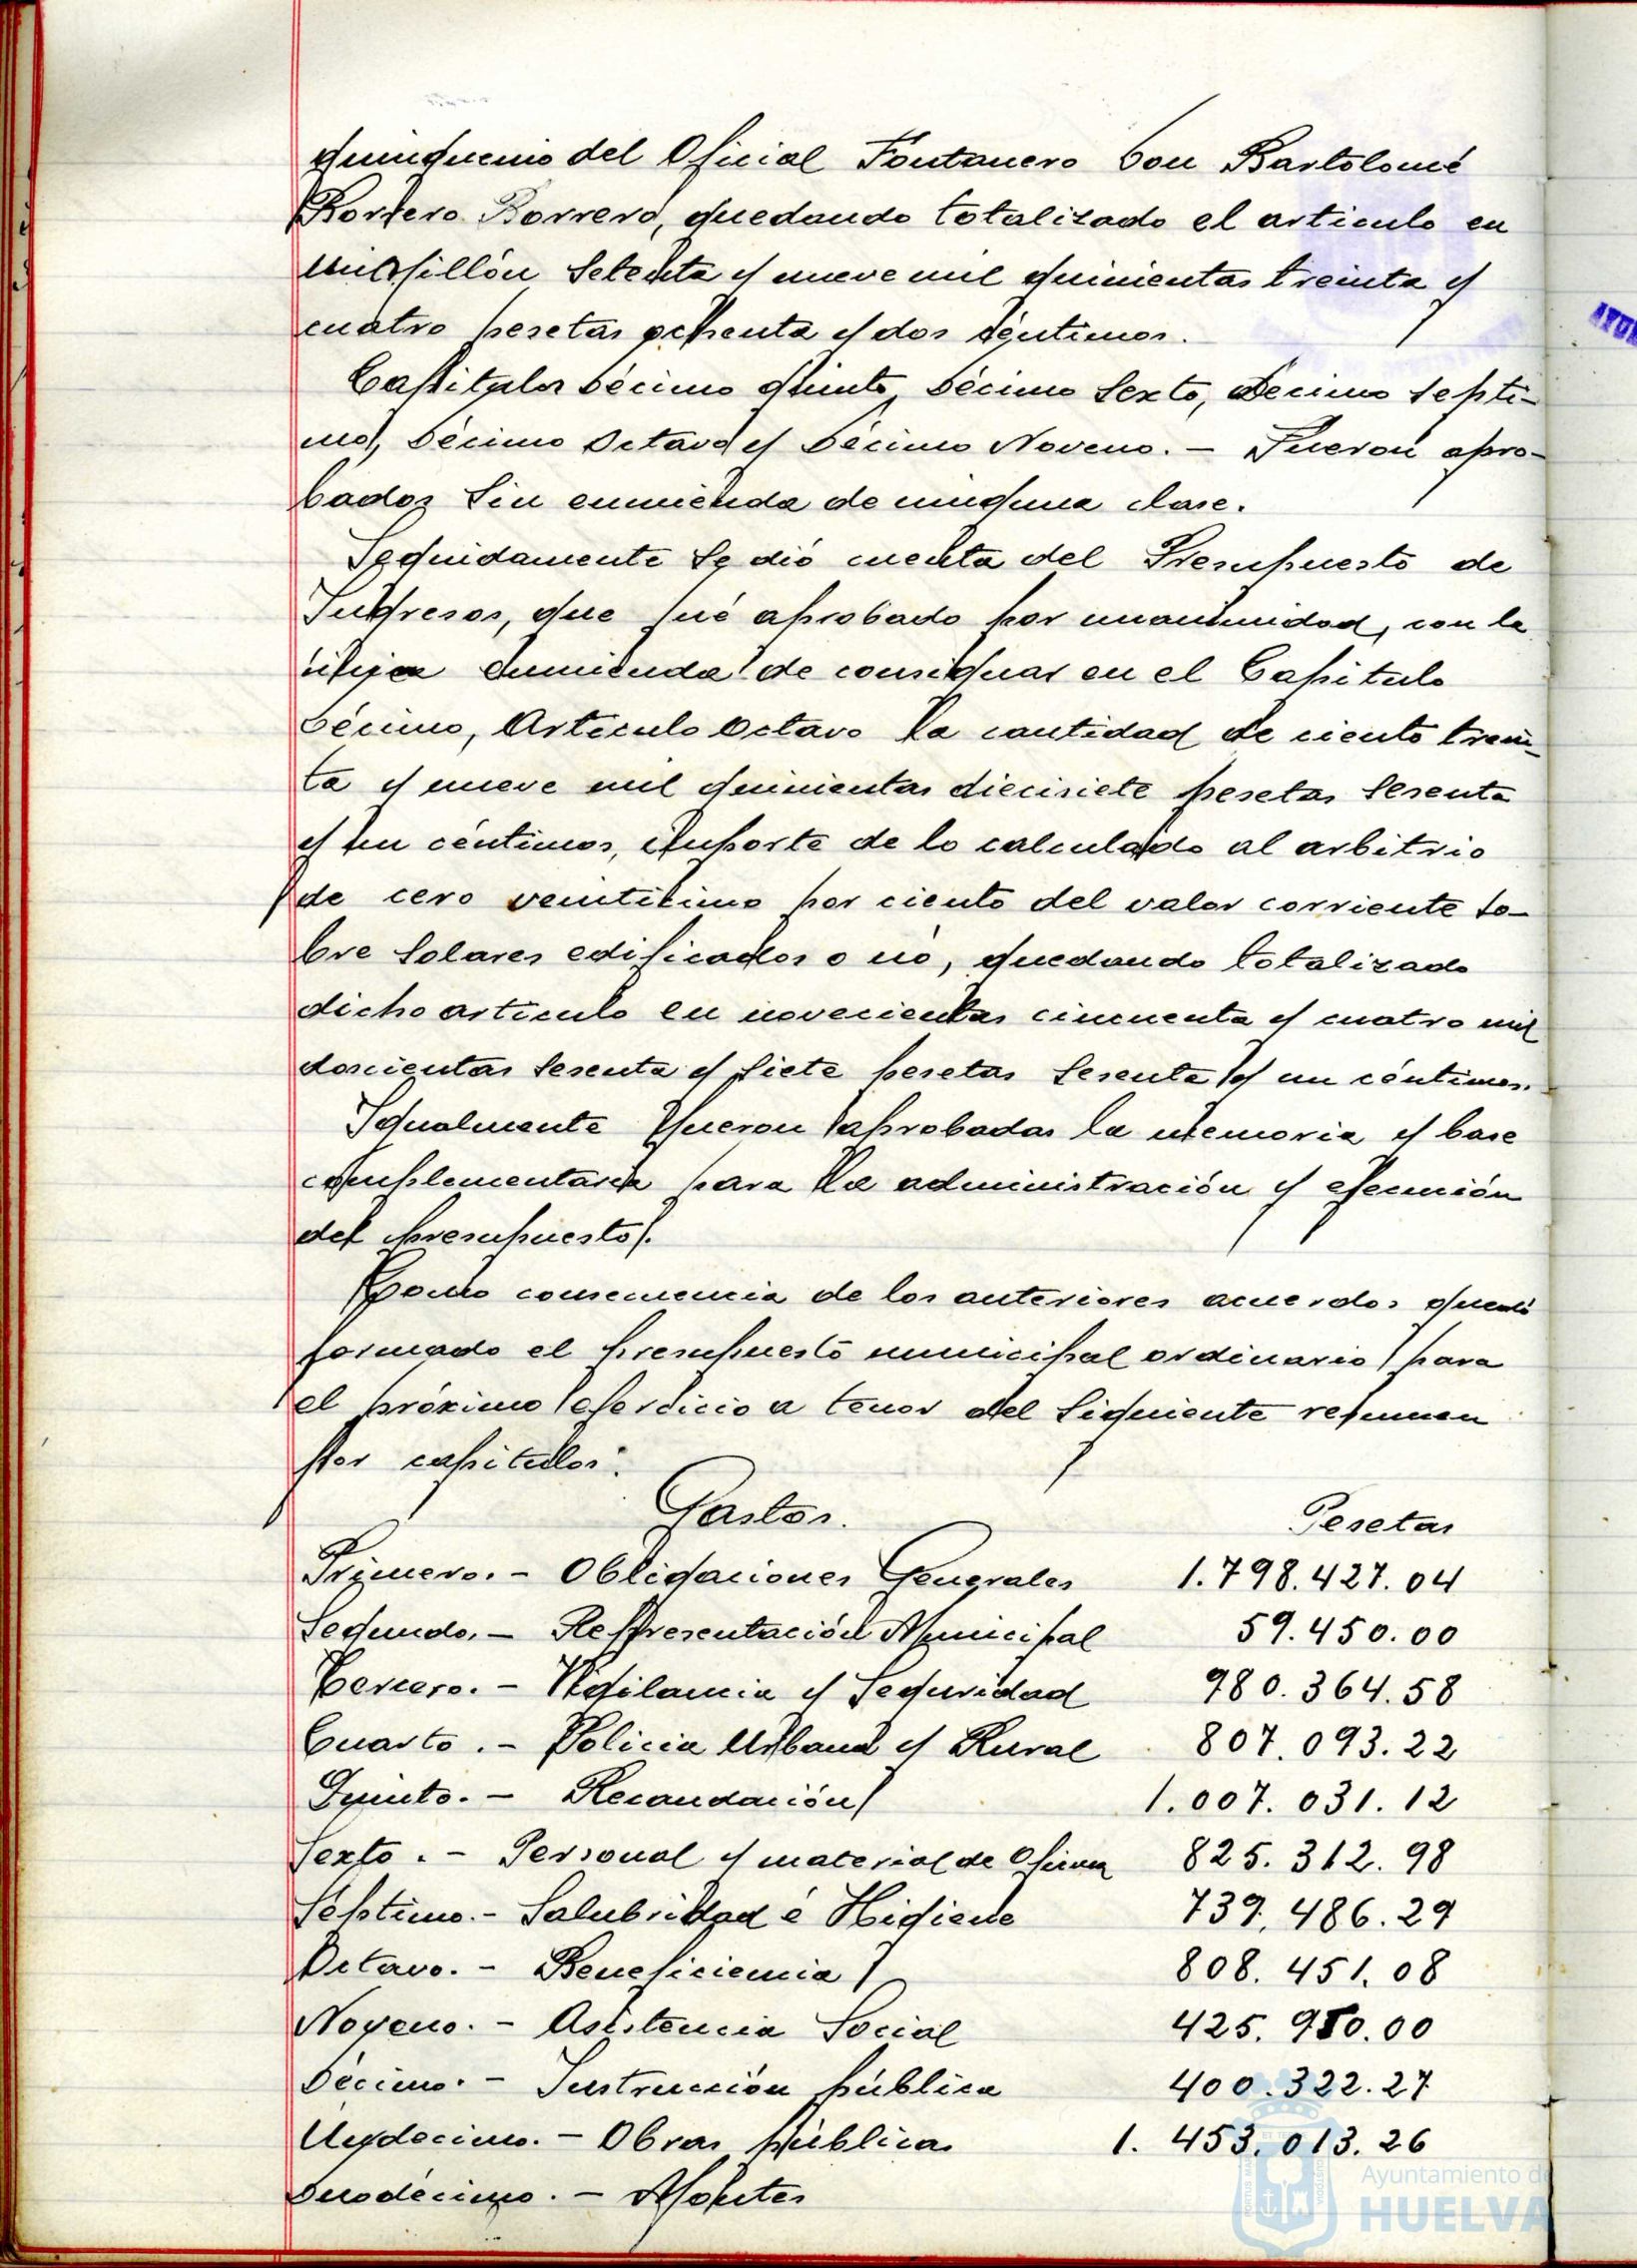 quinquenio del Oficial Fontanero Don Bartolomé
Borrero, quedando totalizado el articulo en
un millón setenta y nueve mil quinientas treinta y
cuatro pesetas ochenta y dos céntimos.
Capitulos Décimo quinto, Décimo Sexto, Décimo Septi-
mo, Décimo Octavo y Décimo Noveno. — Fueron apro-
bados sin enmienda de ninguna clase.
Seguidamente se dió cuenta del Presupuesto de
Ingresos, que fué aprobado por unanimidad, con la
única enmienda de consignar en el Capitulo
Décimo, Articulo Octavo la cantidad de ciento trein-
ta y nueve mil quinientas diecisiete pesetas sesenta
y un céntimos, importe de lo calculado al arbitrio
de cero veintitimo por ciento del valor corriente so-
bre solares edificados o no, quedando totalizado
dicho articulo en novecientas cincuenta y cuatro mil
doscientas sesenta y siete pesetas sesenta y un céntimos.
Igualmente fueron aprobadas la memoria y base
complementaria para la administración y ejecución
del presupuesto.
Como consecuencia de los anteriores acuerdos quedó
formado el presupuesto municipal ordinario para
el próximo ejercicio a tenor del siguiente resumen
por capitulos:
Gastos. Pesetas
Primero. - Obligaciones Generales 1.798.427.04
Segundo. — Representación Municipal 59.450.00
Tercero. - Vigilancia y Seguridad 980.364.58
Cuarto. - Policia Urbana y Rural 807.093.22
Quinto. — Recaudación 1.007.031.12
Sexto. - Personal y material de Oficina 825.312.98
Séptimo. - Salubridad é Higiene 739.486.29
Octavo. - Beneficiencia 808.451.08
Noveno. - Asistencia Social 425.980.00
Décimo. - Instrucción pública 400.322.27
Undecimo. — Obras públicas 1.453.013.26
Duodécimo. — Montes
Ayuntamiento de
HUELVA